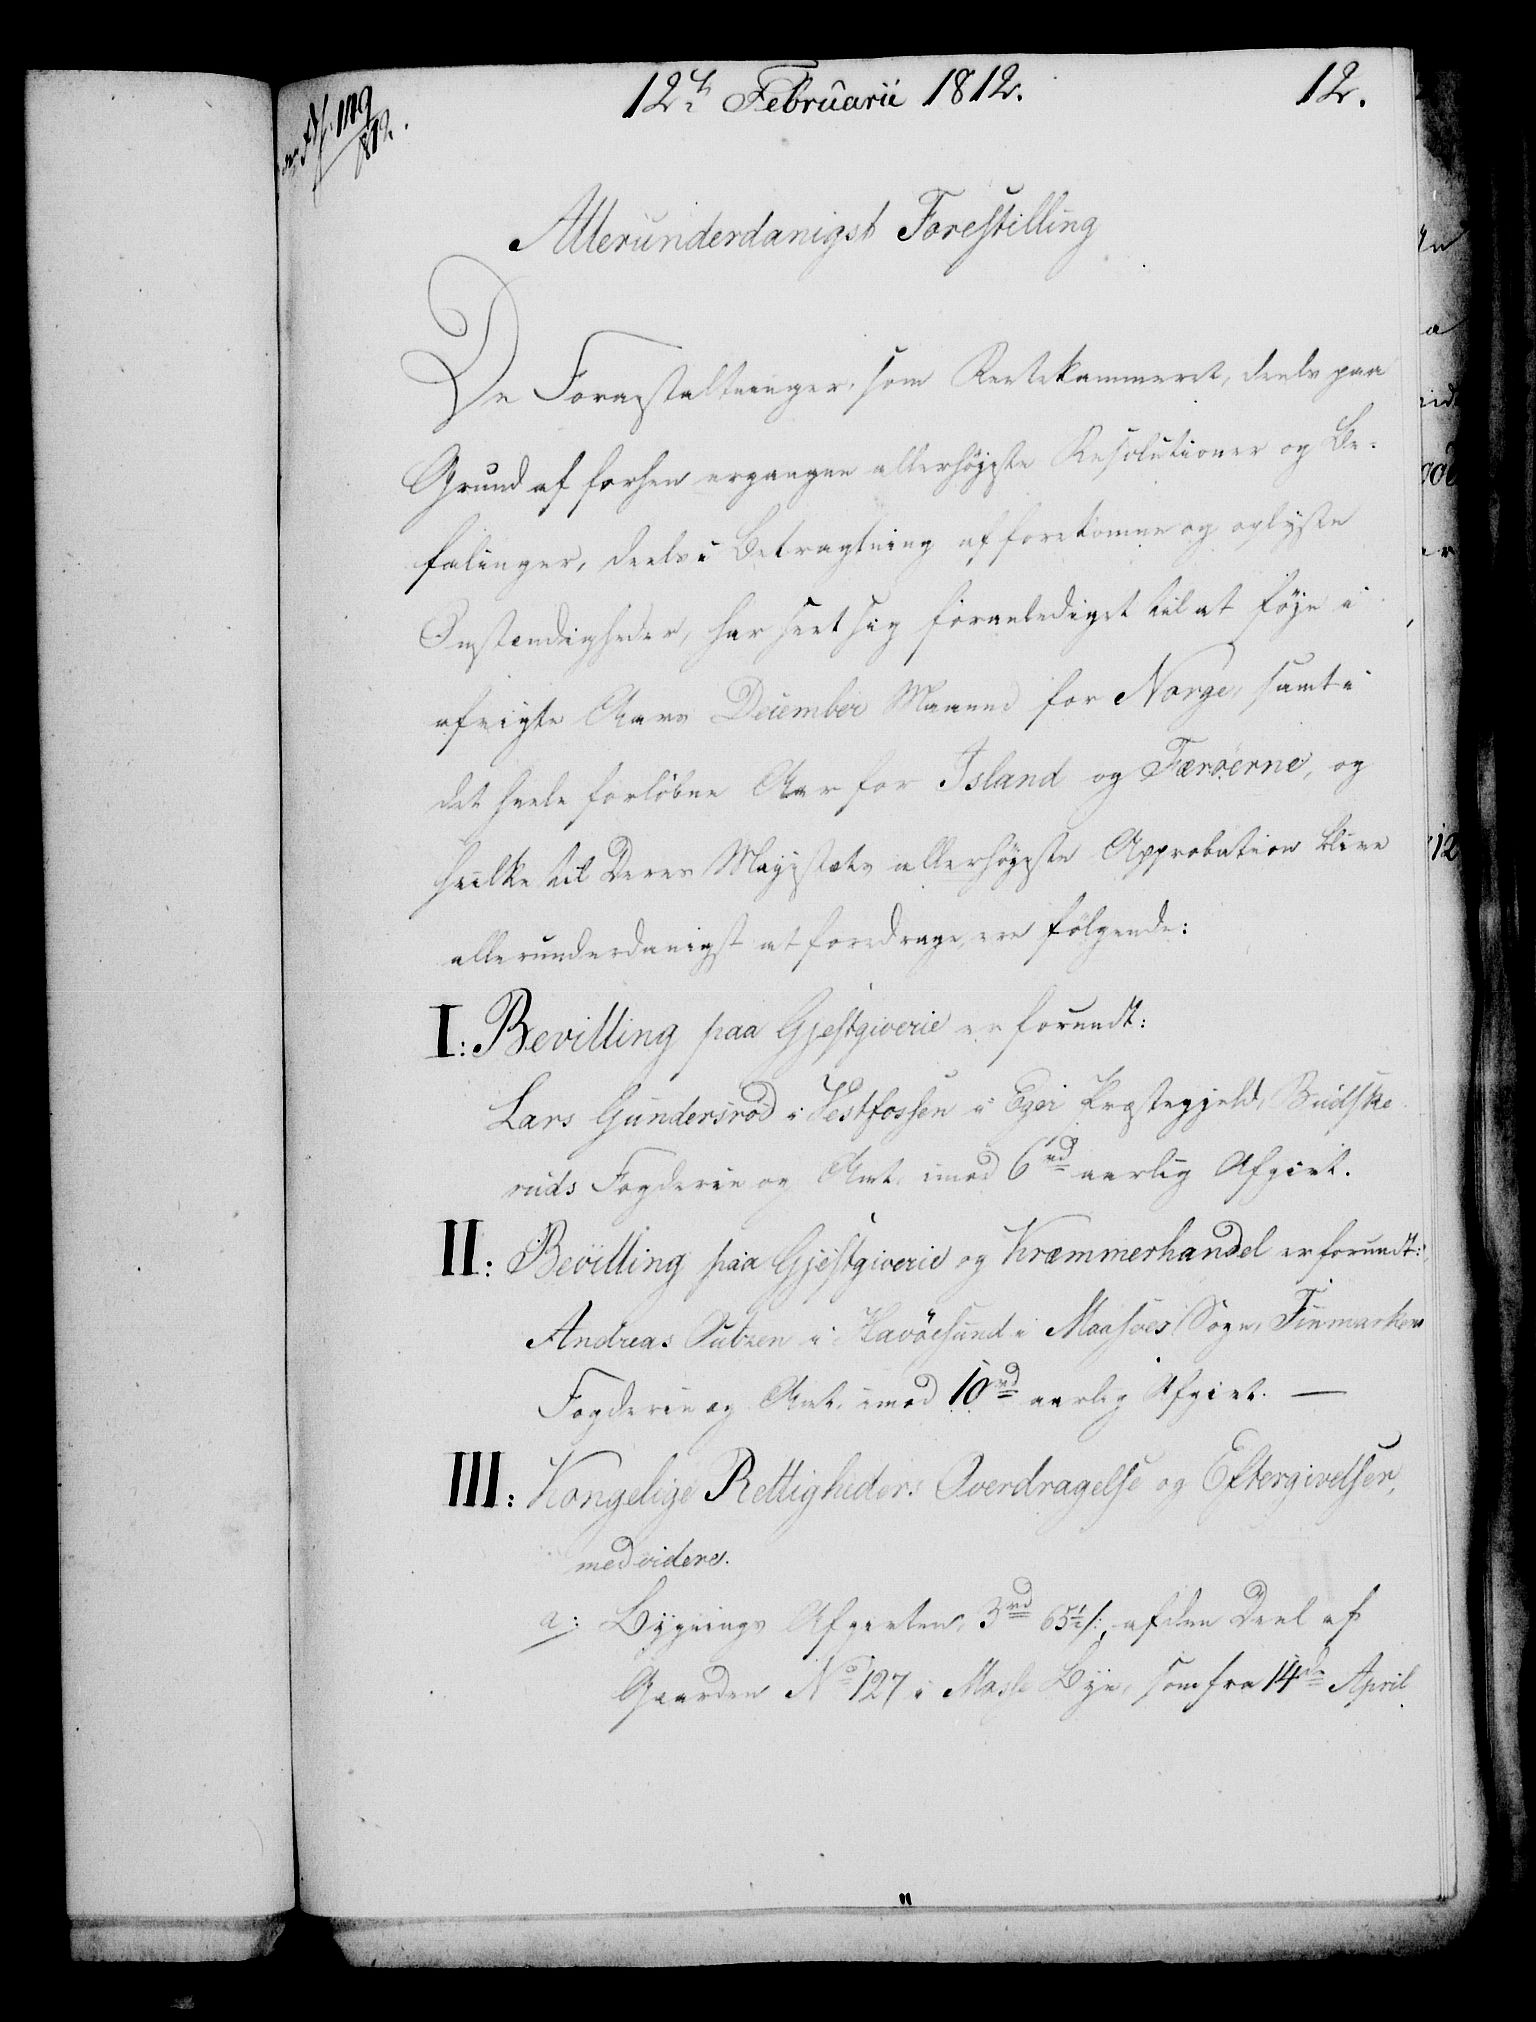 12te Februarii 1812.
12.
119
1812.
Allerunderdanigst Forestilling
De Foranstaltninger, som Rentekammeret, deels paa
Grund af forhen ergangne allerhøjeste Resolutioner og Be-
falinger, deels i Betragtning af forekomne og oplyste
Omstændigheder, har seet sig foranlediget til at føje i
afvigte Aars December Maaned for Norge, samt i
det heele forløbne Aar for Island og Færöerne, og
hvilke til Deres Majestæts allerhøjeste Approbation blive
allerunderdanigst at foredrage, ere følgende:
I: Bevilling paa Gjestgiverie er forundt:
Lars Gundersrød i Vestfossen i Eger Præstegjeld, Budske
ruds Fogderie og Amt, imod 6 rd aarlig Afgivt.
II: Bevilling paa Gjestgiverie og Kræmmerhandel er forundt:
Andreas i Havöesund i Maasøes Sogn, Finmarkens
Fogderie og Amt, imod 10 rd aarlig Afgivt. —
III: Kongelige Rettigheders Overdragelse og Eftergivelser,
med videre.
a: Bygnings Afgivten, 3 rd 65½ s:, af den Deel af
Gaarden No 127 i Moss Bye, som fra 14de April